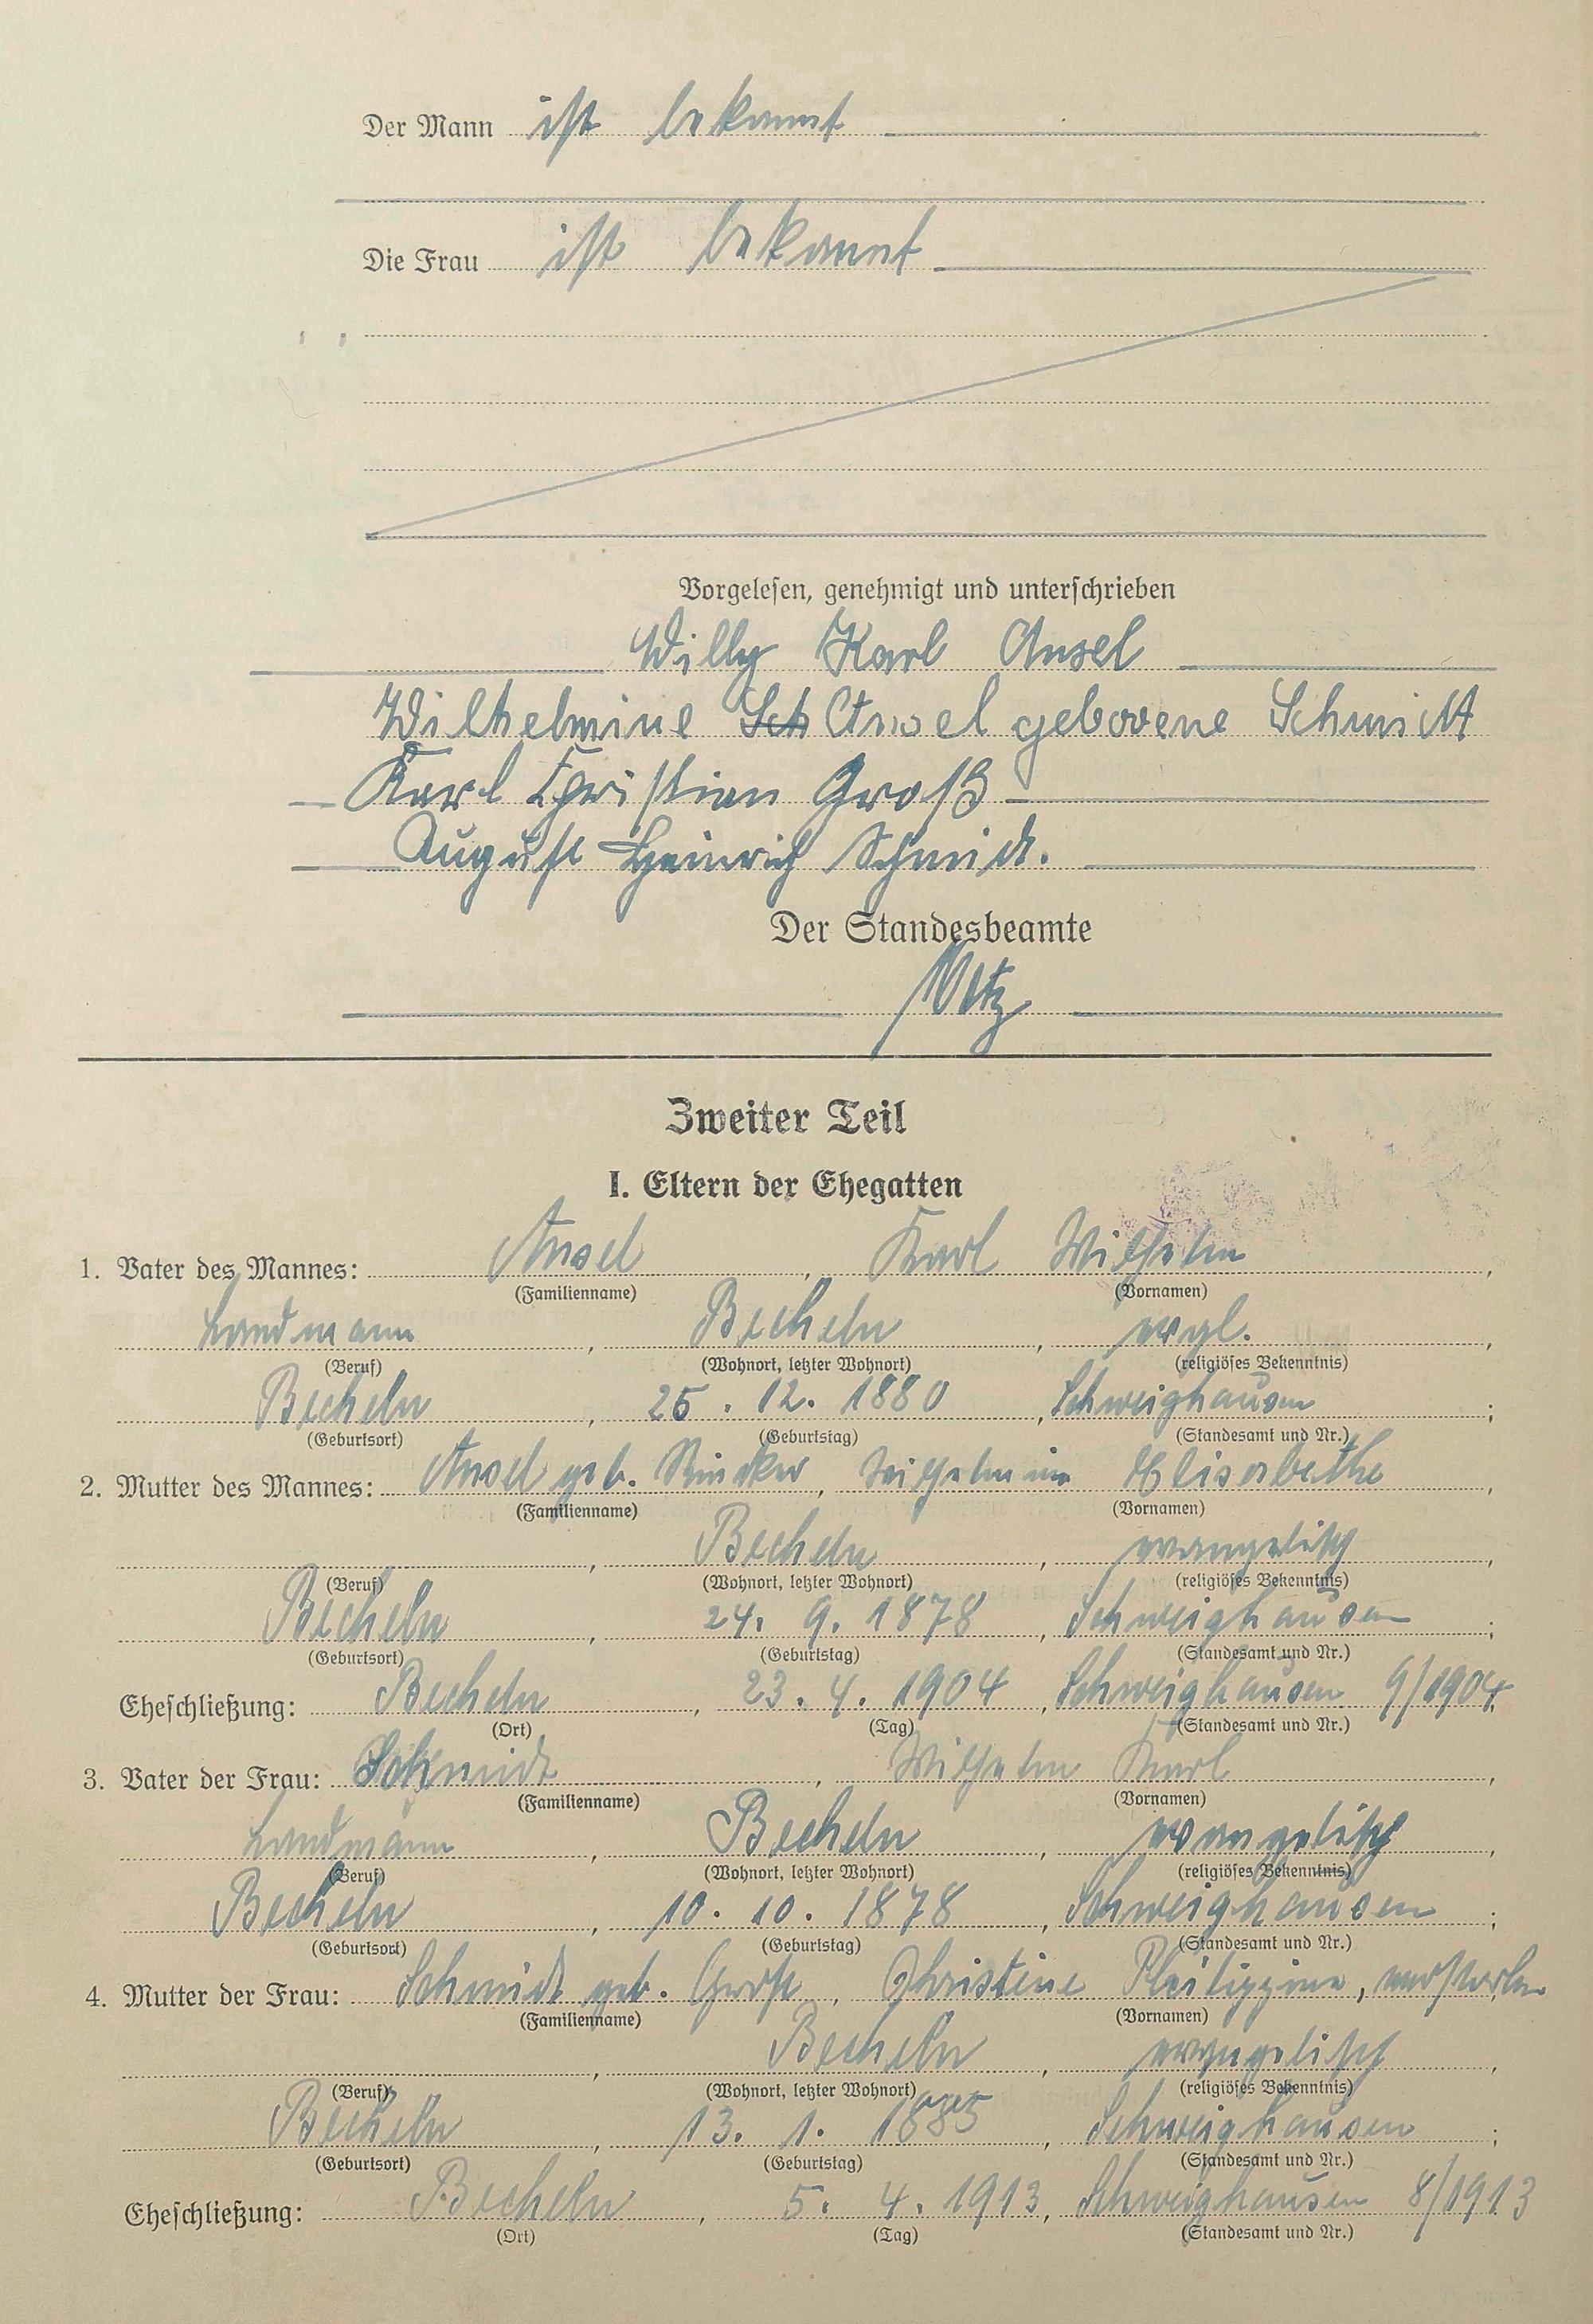 Der Mann ist bekannt
Die Frau ist bekannt
Vorgelesen, genehmigt und unterschrieben
Willy Karl Ansel
Wilhelmine Sch Ansel geborene Schmidt
Karl Christian Groß
August Heinrich Schmidt.
Der Standesbeamte
Metz
Zweiter Teil
I. Eltern der Ehegatten
1. Vater des Mannes: Ansel, Karl Wilhelm,
(Familienname) (Vornamen)
Landmann, Becheln, evgl.,
(Beruf) (Wohnort, letzter Wohnort) (religiöses Bekenntnis)
Becheln, 25. 12. 1880, Schweighausen;
(Geburtsort) (Geburtstag) (Standesamt und Nr.)
2. Mutter des Mannes: Ansel geb. , Wilhelmine Elisabethe,
(Familienname) (Vornamen)
, Becheln, evangelisch,
(Beruf) (Wohnort, letzter Wohnort) (religiöses Bekenntnis)
Becheln, 24. 9. 1878, Schweighausen;
(Geburtsort) (Geburtstag) (Standesamt und Nr.)
Eheschließung: Becheln, 23. 4. 1904, Schweighausen 9/1904.
(Ort) (Tag) (Standesamt und Nr.)
3. Vater der Frau: Schmidt, Wilhelm Karl,
(Familienname) (Vornamen)
Landmann, Becheln, evangelisch,
(Beruf) (Wohnort, letzter Wohnort) (religiöses Bekenntnis)
Becheln, 10. 10. 1878, Schweighausen;
(Geburtsort) (Geburtstag) (Standesamt und Nr.)
4. Mutter der Frau: Schmidt geb. Groß, Christine Philippine, verstorben
(Familienname) (Vornamen)
, Becheln, evangelisch,
(Beruf) (Wohnort, letzter Wohnort) (religiöses Bekenntnis)
Becheln, 13. 1. 1885, Schweighausen;
(Geburtsort) (Geburtstag) (Standesamt und Nr.)
Eheschließung: Becheln, 5. 4. 1913, Schweighausen 8/1913
(Ort) (Tag) (Standesamt und Nr.)